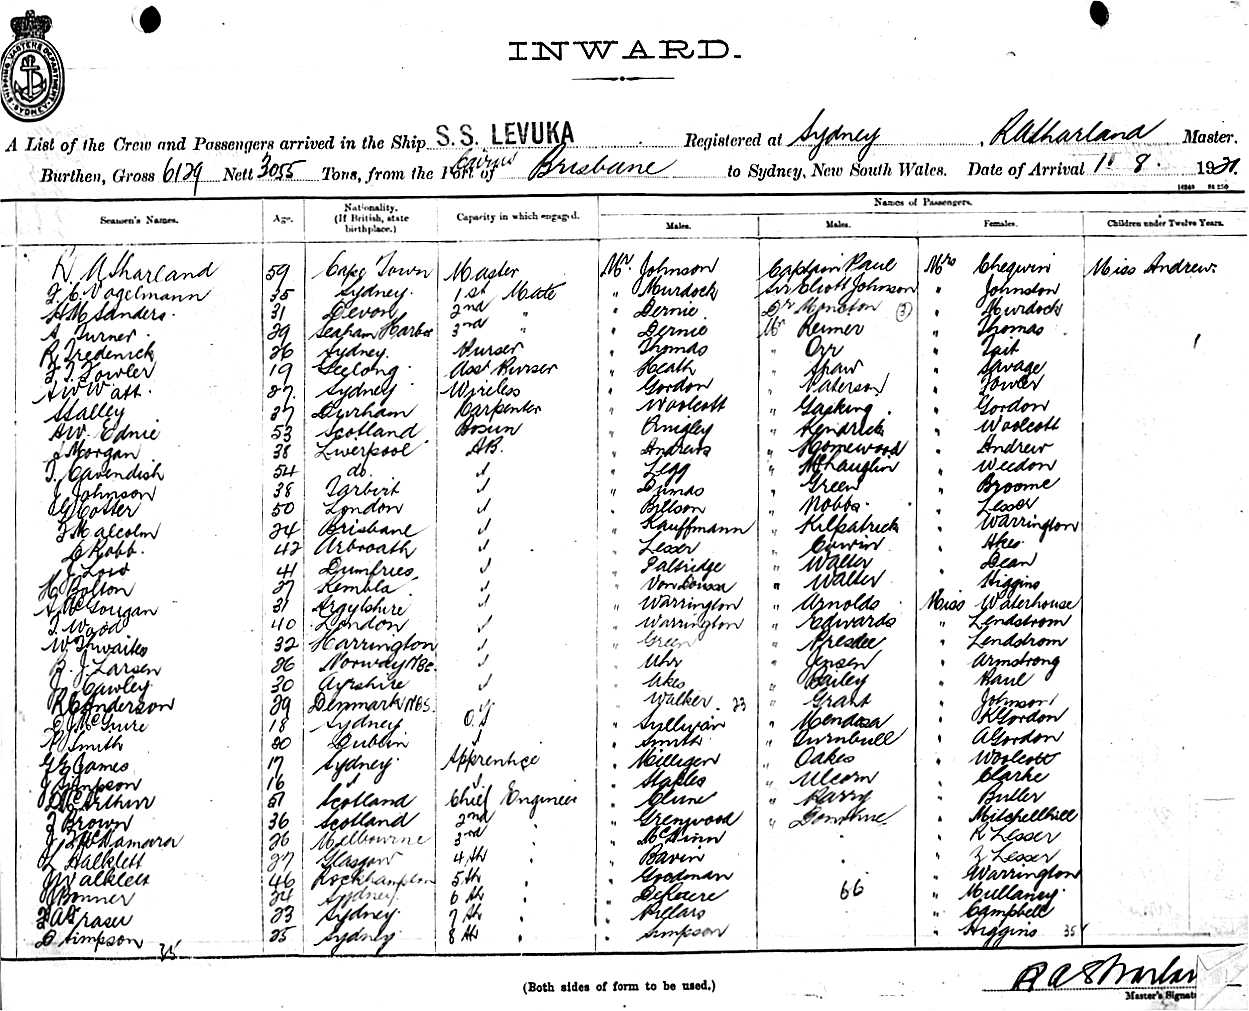 SHIPPING MASTERS DEPARTMENT SYDNEY
INWARD.
A List of the Crew and Passengers arrived in the Ship S.S. LEVUKA Registered at Sydney, R A Sharland Master.
Burthen, Gross 6129 Nett 3055 Tons, from the Port of Cairns Brisbane to Sydney, New South Wales. Date of Arrival 8.
Names of Passengers.
Seamen's Names. Age. Nationality. (If British, state birthplace.) Capacity in which engaged. Males. Males. Females. Children under Twelve Years.
R A Sharland 59 Cape Town Master Mr Johnson Captain Paul Mrs Chegwin Miss Andrew
F. C. Vogelmann 35 Sydney. 1st Mate " Murdock Sir Eliott Johnson " Johnston
H M Sanders. 31 Devon 2nd " " Bernie Dr Monston (3) " Murdock
A Turner 29 Seaham Harbor 3rd " " Bernie Mr Reimer " Thomas
R Frederick 26 Sydney. Purser " Thomas " Orr " Tait
F. T. Fowler 19 Geelong. Asst Purser " Heath " Shaw " Savage
A W Watt. 27. Sydney Wireless " Gordon " Paterson " Fowler
Stalley 37 Durham Carpenter " Woolcott " Gasking. " Gordon
A W. Ednie 53 Scotland Bosun " Quigley " Kendrick " Woolcott
J Morgan 38 Liverpool A.B. " Andrews " Homewood " Andrew
T. Cavendish 54 do. " Legg " McLaughlin " Weedon
J Johnson 38 Tarbert " Dumas " Green " Broome
G Coster 50 London " Billson " Nobbs. " Lesser
F Malcolm 24 Brisbane " Kauffmann " Kilpatrick " Warrington
C Robb. 42 Arbroath " Lesser " Corwin " Akes
J. Low 41 Dumfries " Paltridge " Walter " Dean
H Bolton 27 Kembla " Von Doussa " Walter " Higgins
A McGougan 31 Argylshire " Warrington " Arnolds Miss Waterhouse
T Wood 40 London " Warrington " Edwards " Lendstrom
W Thwaites 32 Harrington " Green " Presdee " Lendstrom
R. J. Larsen 26 Norway NBS. " Uhr " Jensen " Armstrong
J Cawley 30 Ayrshire " Akes " Bailey " Paul
R C Anderson 29 Denmark NBS. " Walker. 23 " Grant " Johnson
E McGuire 18 Sydney O.S " Sullivan " Mendosa " K Gordon
N Smith 20 Dublin " Smith " Turnbull " A Gordon
G G James 17 Sydney Apprentice " Milligen " Oakes " Woolcott
J Simpson 16 " Staples " Ulcorn " Clarke
D McArthur 51 Scotland Chief Engineer " Clune " Barry " Butler
J Brown 36 Scotland 2nd " " Grenwood " Donohue. " Mitchelhill
J F McNamara 26 Melbourne 3rd " McGinn " K Lesser
L Halklett 27 Glasgow 4th " " Bavin " Z Lesser
J Walklett 46 Rockhampton 5th " " Goodman " Warrington
J Bonner 24 Sydney 6th " " 66 " Mullaney
F A Fraser 23 Sydney. 7th " " Pillars " Campbell
D Simpson 25 Sydney 8th " " Simpson " Higgins 35
35
(Both sides of form to be used.)
R A Sharland
Master's Signature